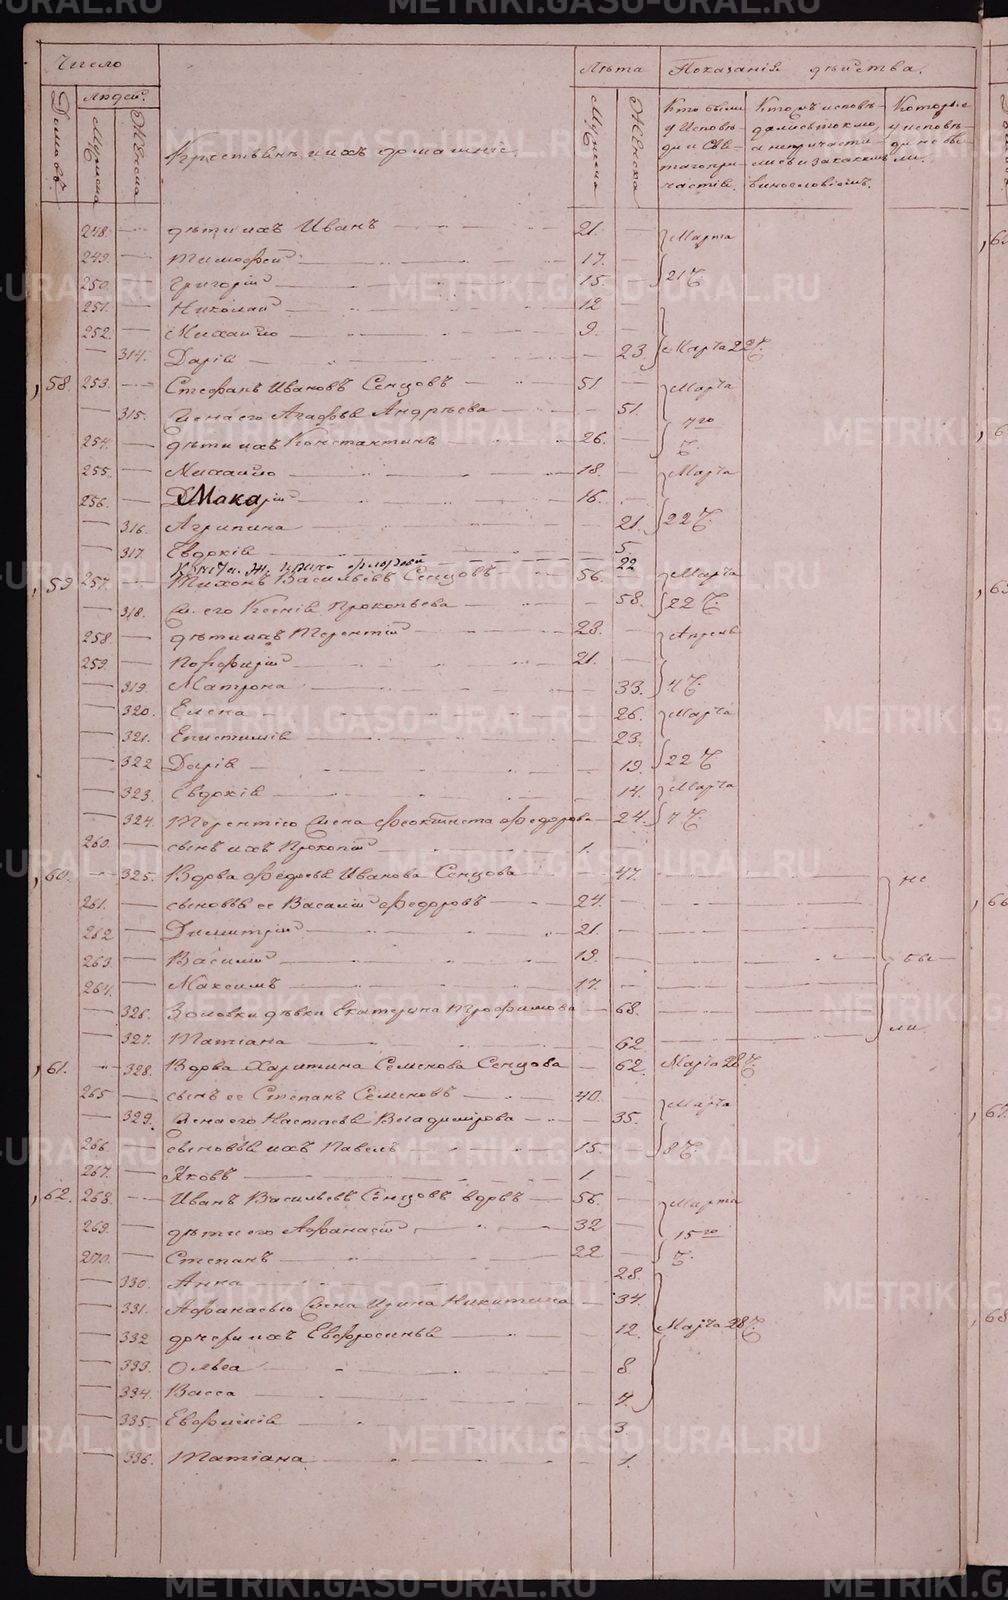 Число
Лѣта
Показанія дѣйства.
Домовъ.
Людей.
Мужеска
Женска
Крестьяне и ихъ домашніе
Мужеска
Женска
Кто были у Исповѣди и Свѣтаго причастія.
Которые у исповѣди не были.
248. — дѣти ихъ Иванъ — 21. Марта
249. — Тимофей — 17.
250. — Григорій — 15. 21 Ч.
251. — Николай — 12
252. — Михайло — 9.
314. Дарія — 23. Марта 22 Ч.
58 253. — Стефанъ Ивановъ Сенцовъ — 51 Марта
315. Жена его Агафья Андрѣева — 51.
7го
254. — дѣти ихъ Константинъ — 26. Ч.
255. — Михайло — 18. Марта
256. — Макарій — 16.
316. Агрипина — 21. 22 Ч.
317. Евдокія — 5.
22
59 257. — Тихонъ Васильевъ Сенцовъ — 56. Марта
318. Ж. его Ксенія Прокопьева — 58. 22 Ч.
258. — дѣти ихъ Терентій — 28. Апреля
259. — Порфирій — 21.
319. Матрона — 33. 4 Ч.
320. Елена — 26. Марта
321. Епистимія — 23.
322 Дарія — 19. 22 Ч.
323. Евдокія — 14. Марта
324. Терентію Жена Феоктиста Федорова — 24. 7 Ч.
260. — сынъ ихъ Прокопій — 1.
60. 325. Вдова Федосья Иванова Сенцова — 47. не
261. — сыновья ее Василій Федоровъ — 24.
262 — Димитрій — 21.
263. — Василій — 19. бы
264. — Максимъ — 17.
326. Золовки дѣвки Екатерина Трофимова — 68. ли
327. Татіана — 62
61. 328. Вдова Харитина Семенова Сенцова — 62. Марта 28 Ч.
265 — сынъ ее Степанъ Семеновъ — 40. Марта
329. Жена его Настасья Владимірова — 35.
266. — сыновья ихъ Павелъ — 15. 8 Ч.
267. — Яковъ — 1
62. 268. — Иванъ Васильевъ Сенцовъ вдовъ — 56. Марта
269. — дѣти его Афанасій — 32 15го
270. — Степанъ — 22 Ч.
330. Анна — 28.
331. Афанасью Жена Ирина Никитина — 34.
332 дочери ихъ Евфросинья — 12. Марта 28 Ч.
333. Ольга — 8.
334. Васса — 7.
335. Евфимія — 3.
336. Татіана — 1.
METRIKI.GASO-URAL.RU